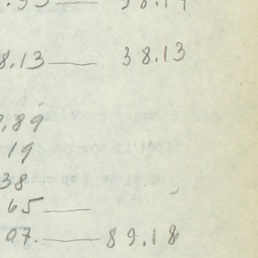 8.13 — 38.13
.89
19
38
65 —
07. — 89.18